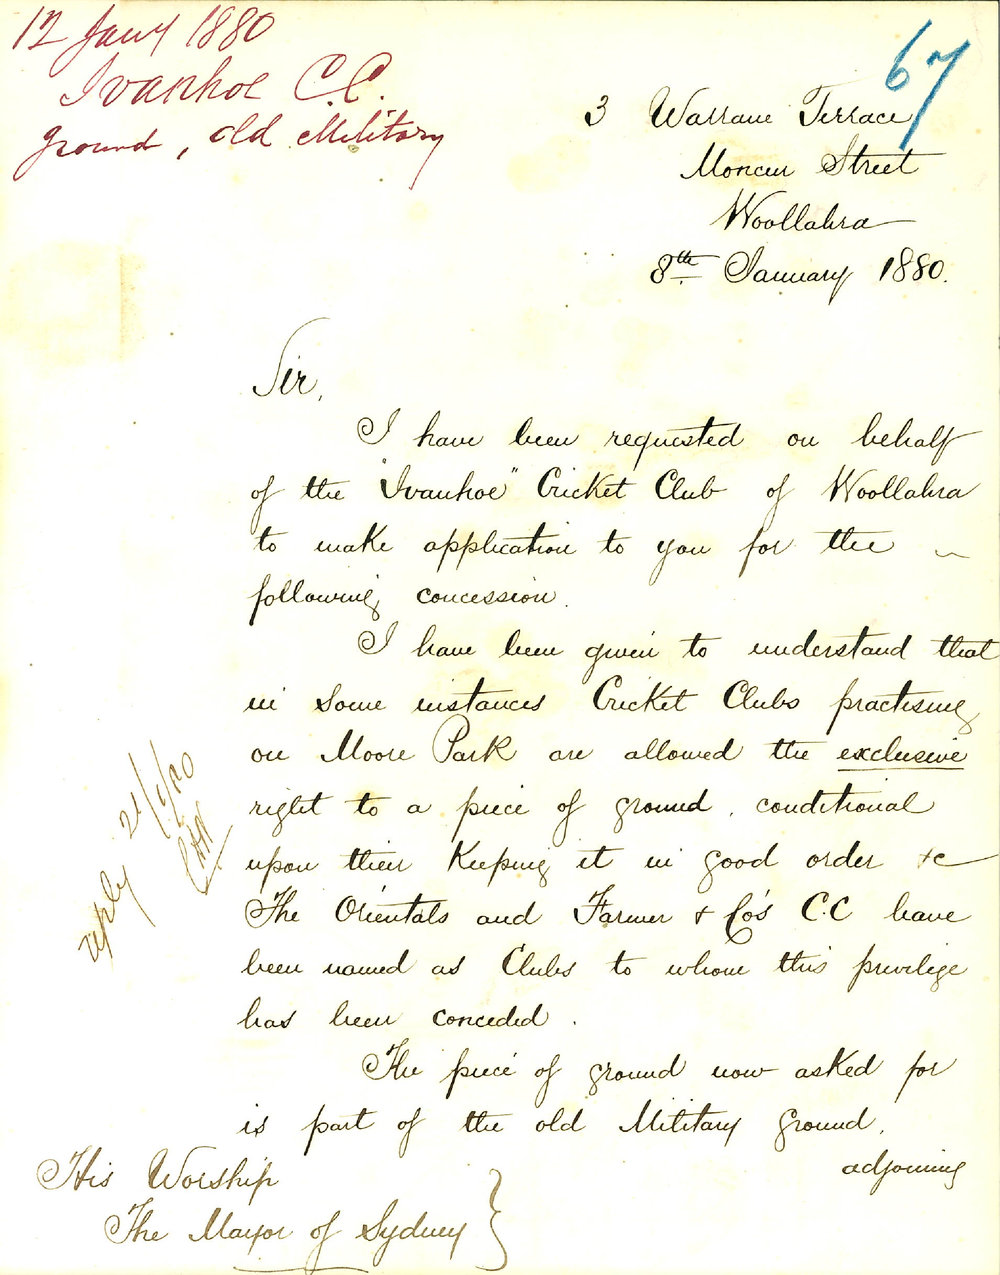 12 Jany 1880
Ivanhoe C.C.
ground, old Military
67
3 Warrane Terrace
Moncur Street
Woollahra
8th January 1880.
Sir,
I have been requested on behalf
of the "Ivanhoe" Cricket Club of Woollahra
to make application to you for the
following concession.
I have been given to understand that
in some instances Cricket Clubs practising
on Moore Park are allowed the exclusive
right to a piece of ground, conditional
upon their keeping it in good order &c
The Orientals and Farmer & Co's C.C have
been named as Clubs to whom this privilege
has been conceded.
The piece of ground now asked for
is part of the old Military ground,
adjoining
reply 21/1/80
His Worship
The Mayor of Sydney